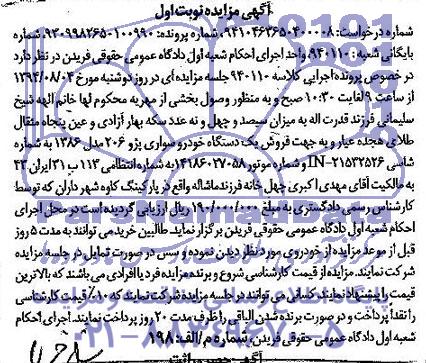 آگهی مزایده نوبت اول
شماره درخواست: ۹۴۱۰۴۶۳۶۵۰۴۰۰۰۰۸، شماره پرونده: ۹۳۰۹۹۸۲۶۵۰۱۰۰۹۹۰، شماره
بایگانی شعبه: ۹۴۰۱۱۰ واحد اجرای احکام شعبه اول دادگاه عمومی حقوقی فریدن در نظر دارد
در خصوص پرونده اجرایی کلاسه ۹۴۰۱۱۰ جلسه مزایده ای در روز دوشنبه مورخ ۱۳۹۴/۰۸/۰۴
از ساعت ۹ لغایت ۱۰:۳۰ صبح و به منظور وصول بخشی از مهریه محکوم لها خانم الهه شیخ
سلیمانی فرزند قدرت اله به میزان سیصد و چهل و نه عدد سکه بهار آزادی و عین پنجاه مثقال
طلای هجده عیار و به جهت فروش یک دستگاه خودرو سواری پژو ۲۰۶ مدل ۱۳۸۶ به شماره
شاسی IN-۲۱۵۳۲۵۲۶ و شماره موتور ۱۴۱۸۶۰۲۷۰۵۸ به شماره انتظامی ۱۱۳ ب ۳۱ ایران ۴۳
به مالکیت آقای مهدی اکبری چهل خانه فرزند ماشااله واقع در پارکینگ کاوه شهر داران که توسط
کارشناس رسمی دادگستری به مبلغ ۱۹۰/۰۰۰/۰۰۰ ریال ارزیابی گردیده است در محل اجرای
احکام شعبه اول دادگاه عمومی حقوقی فریدن برگزار نماید. طالبین خرید می توانند به مدت ۵ روز
قبل از موعد مزایده از خودروی مورد نظر دیدن نموده و سپس در صورت تمایل در جلسه مزایده
شرکت نمایند. مزایده از قیمت کارشناسی شروع و برنده مزایده فرد یا افرادی می باشند که بالاترین
قیمت را پیشنهاد نمایند. کسانی می توانند در جلسه مزایده شرکت نمایند که ۱۰٪ قیمت کارشناسی
را نقدا پرداخت و در صورت برنده شدن الباقی را ظرف مدت ۲۰ روز پرداخت نمایند. اجرای احکام
شعبه اول دادگاه عمومی حقوقی فریدن، شماره م/الف: ۱۹۸